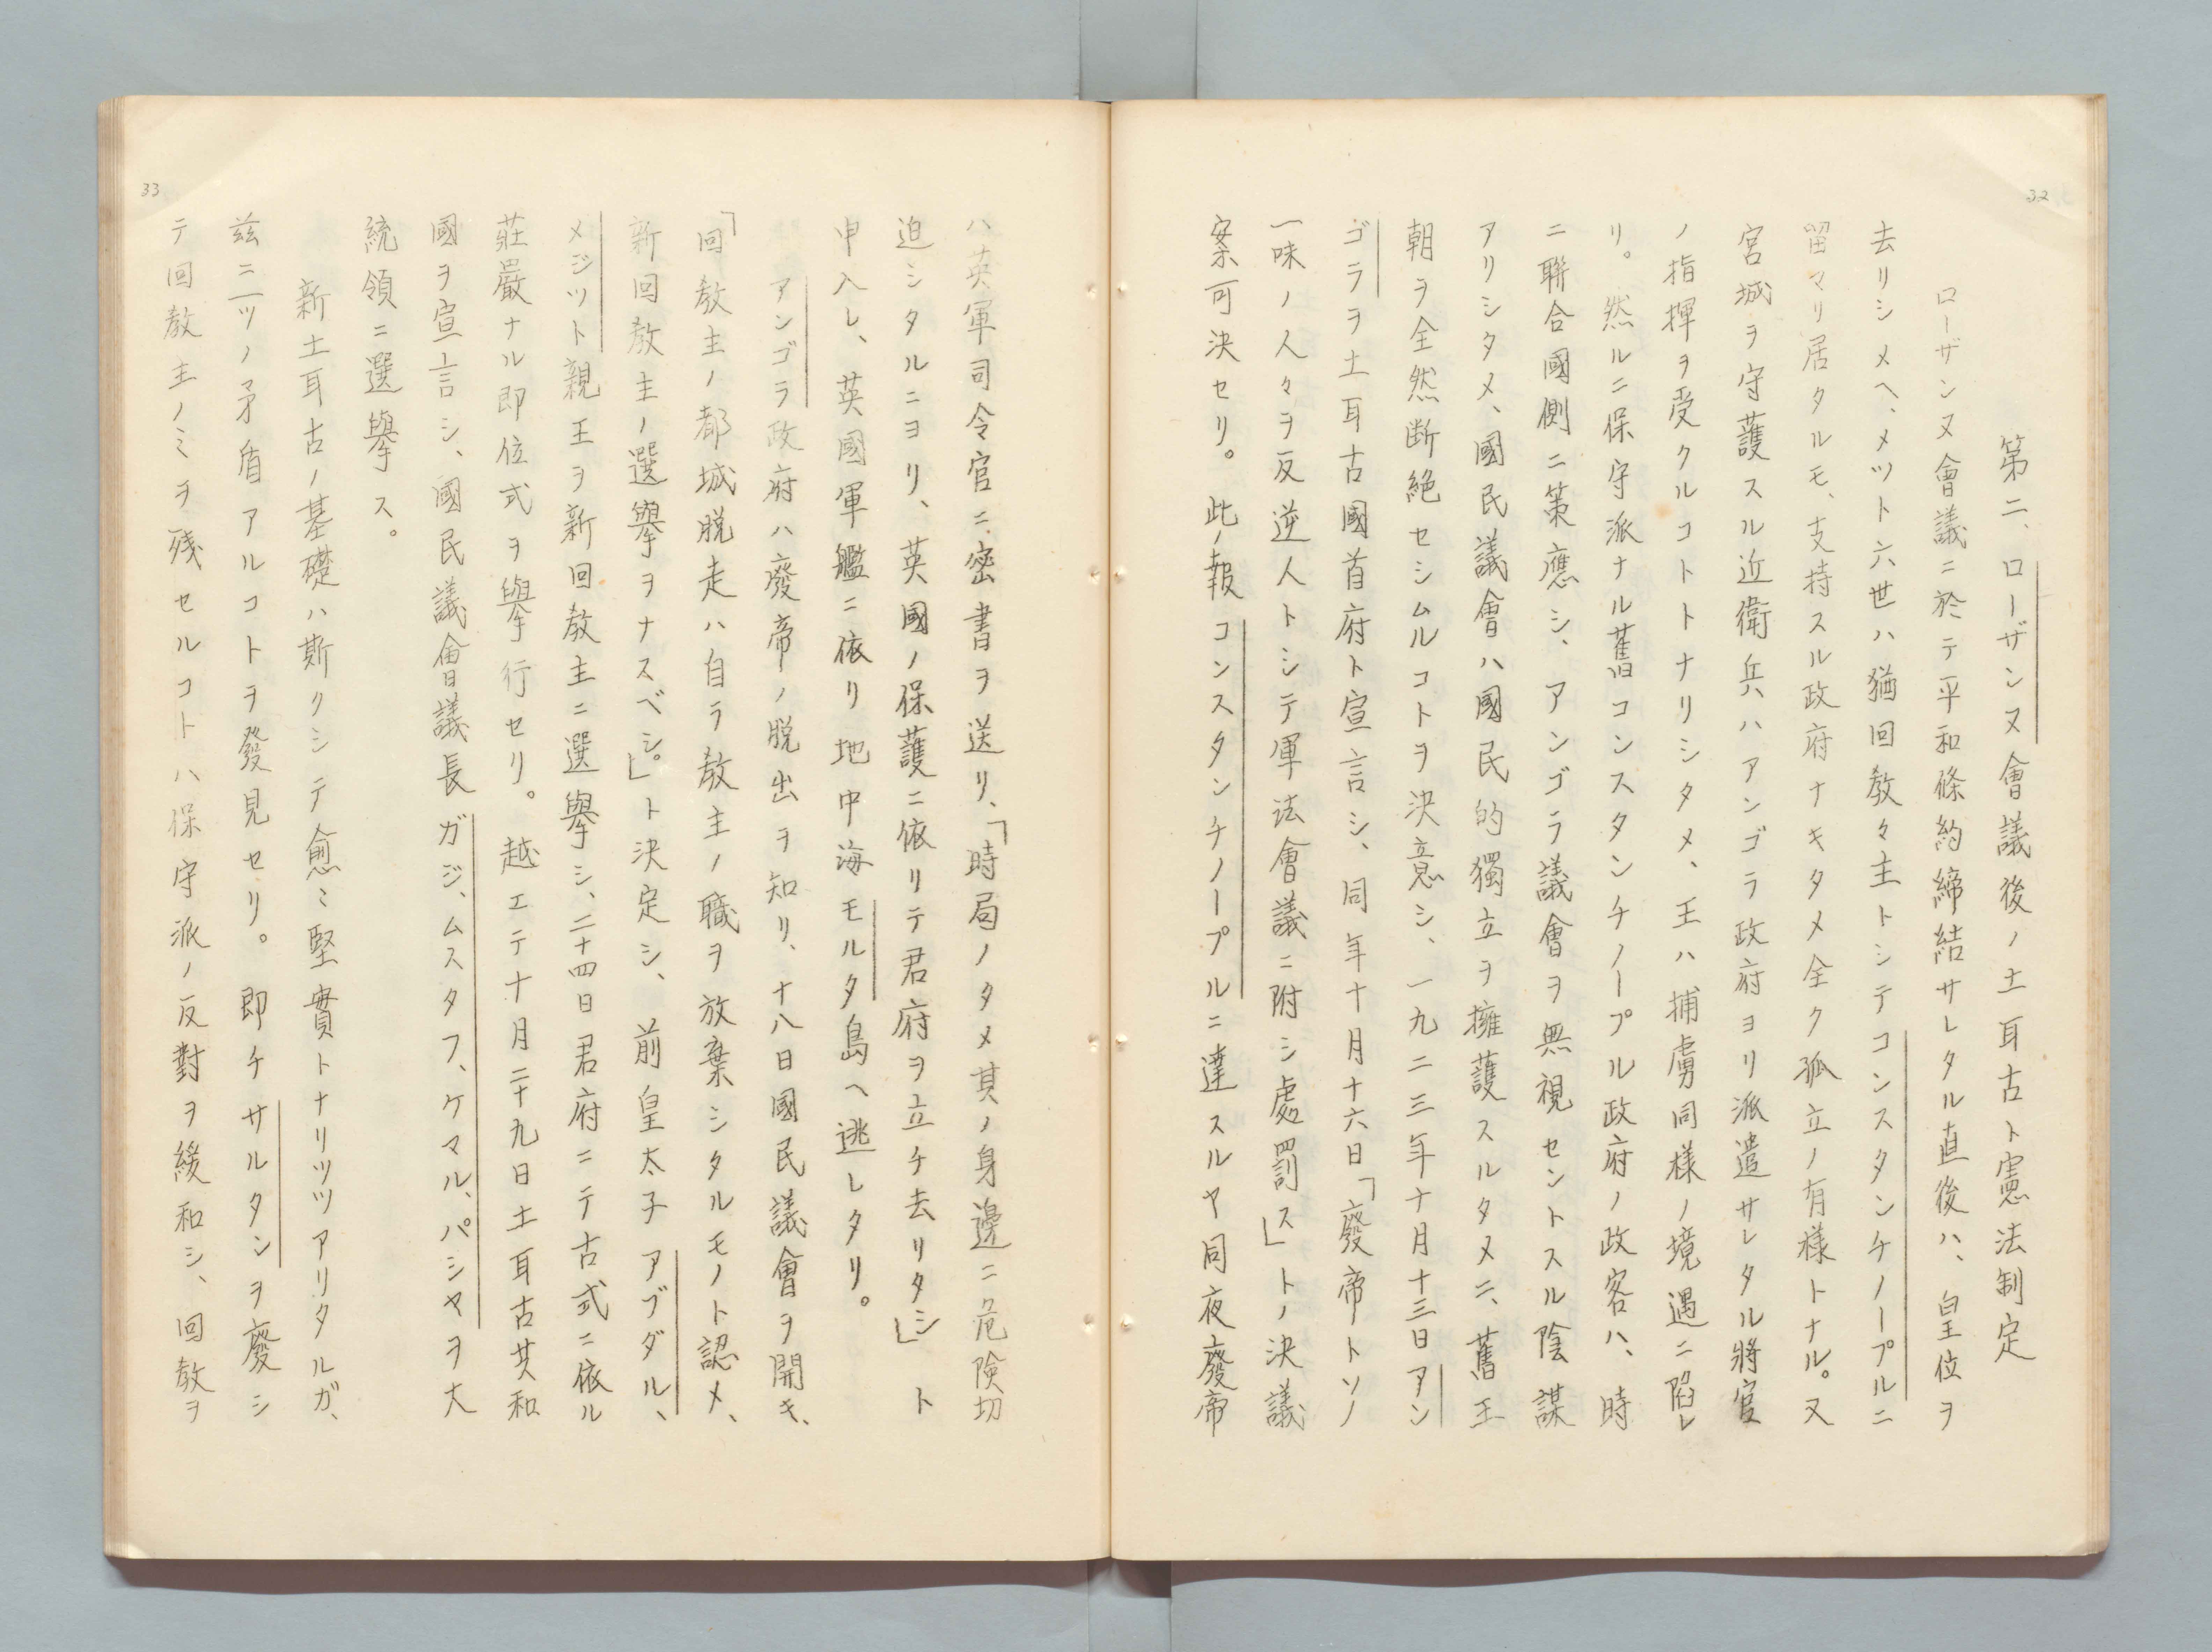 32
第二、ローザンヌ會議後ノ土耳古ト憲法制定
ローザンヌ會議ニ於テ平和條約締結サレタル直後ハ、皇位ヲ
去リシメヘ、メツト六世ハ猶回教々主トシテコンスタンチノープルニ
留マリ居タルモ、支持スル政府ナキタメ全ク孤立ノ有様トナル。又
宮城ヲ守護スル近衛兵ハアンゴラ政府ヨリ派遣サレタル將官
ノ指揮ヲ受クルコトトナリシタメ、王ハ捕虜同様ノ境遇ニ陥レ
リ。然ルニ保守派ナル舊コンスタンチノープル政府ノ政客ハ、時
ニ聯合國側ニ策應シ、アンゴラ議會ヲ無視セントスル陰謀
アリシタメ、國民議會ハ國民的獨立ヲ擁護スルタメニ、舊王
朝ヲ全然断絶セシムルコトヲ決意シ、一九二三年十月十三日アン
ゴラヲ土耳古國首府ト宣言シ、同年十月十六日「廢帝トソノ
一味ノ人々ヲ反逆人トシテ軍法會議ニ附シ處罰ス」トノ決議
案可決セリ。此ノ報コンスタンチノープルニ達スルヤ同夜廢帝
33
ハ英軍司令官ニ密書ヲ送リ、「時局ノタメ其ノ身邊ニ危険切
迫シタルニヨリ、英國ノ保護ニ依リテ君府ヲ立チ去リタシ」ト
申入レ、英國軍艦ニ依リ地中海モルタ島ヘ逃レタリ。
アンゴラ政府ハ廢帝ノ脱出ヲ知リ、十八日國民議會ヲ開キ、
「回教主ノ都城脱走ハ自ラ教主ノ職ヲ放棄シタルモノト認メ、
新回教主ノ選擧ヲナスベシ。」ト決定シ、前皇太子アブダル、
メジツト親王ヲ新回教主ニ選擧シ、二十四日君府ニテ古式ニ依ル
莊嚴ナル即位式ヲ擧行セリ。越エテ十月二十九日土耳古共和
國ヲ宣言シ、國民議會議長ガジ、ムスタフ、ケマル、パシヤヲ大
統領ニ選擧ス。
新土耳古ノ基礎ハ斯クシテ愈ミ堅實トナリツツアリタルガ、
茲ニ二ツノ矛盾アルコトヲ發見セリ。即チサルタンヲ廢シ
テ回教主ノミヲ残セルコトハ保守派ノ反對ヲ緩和シ、回教ヲ